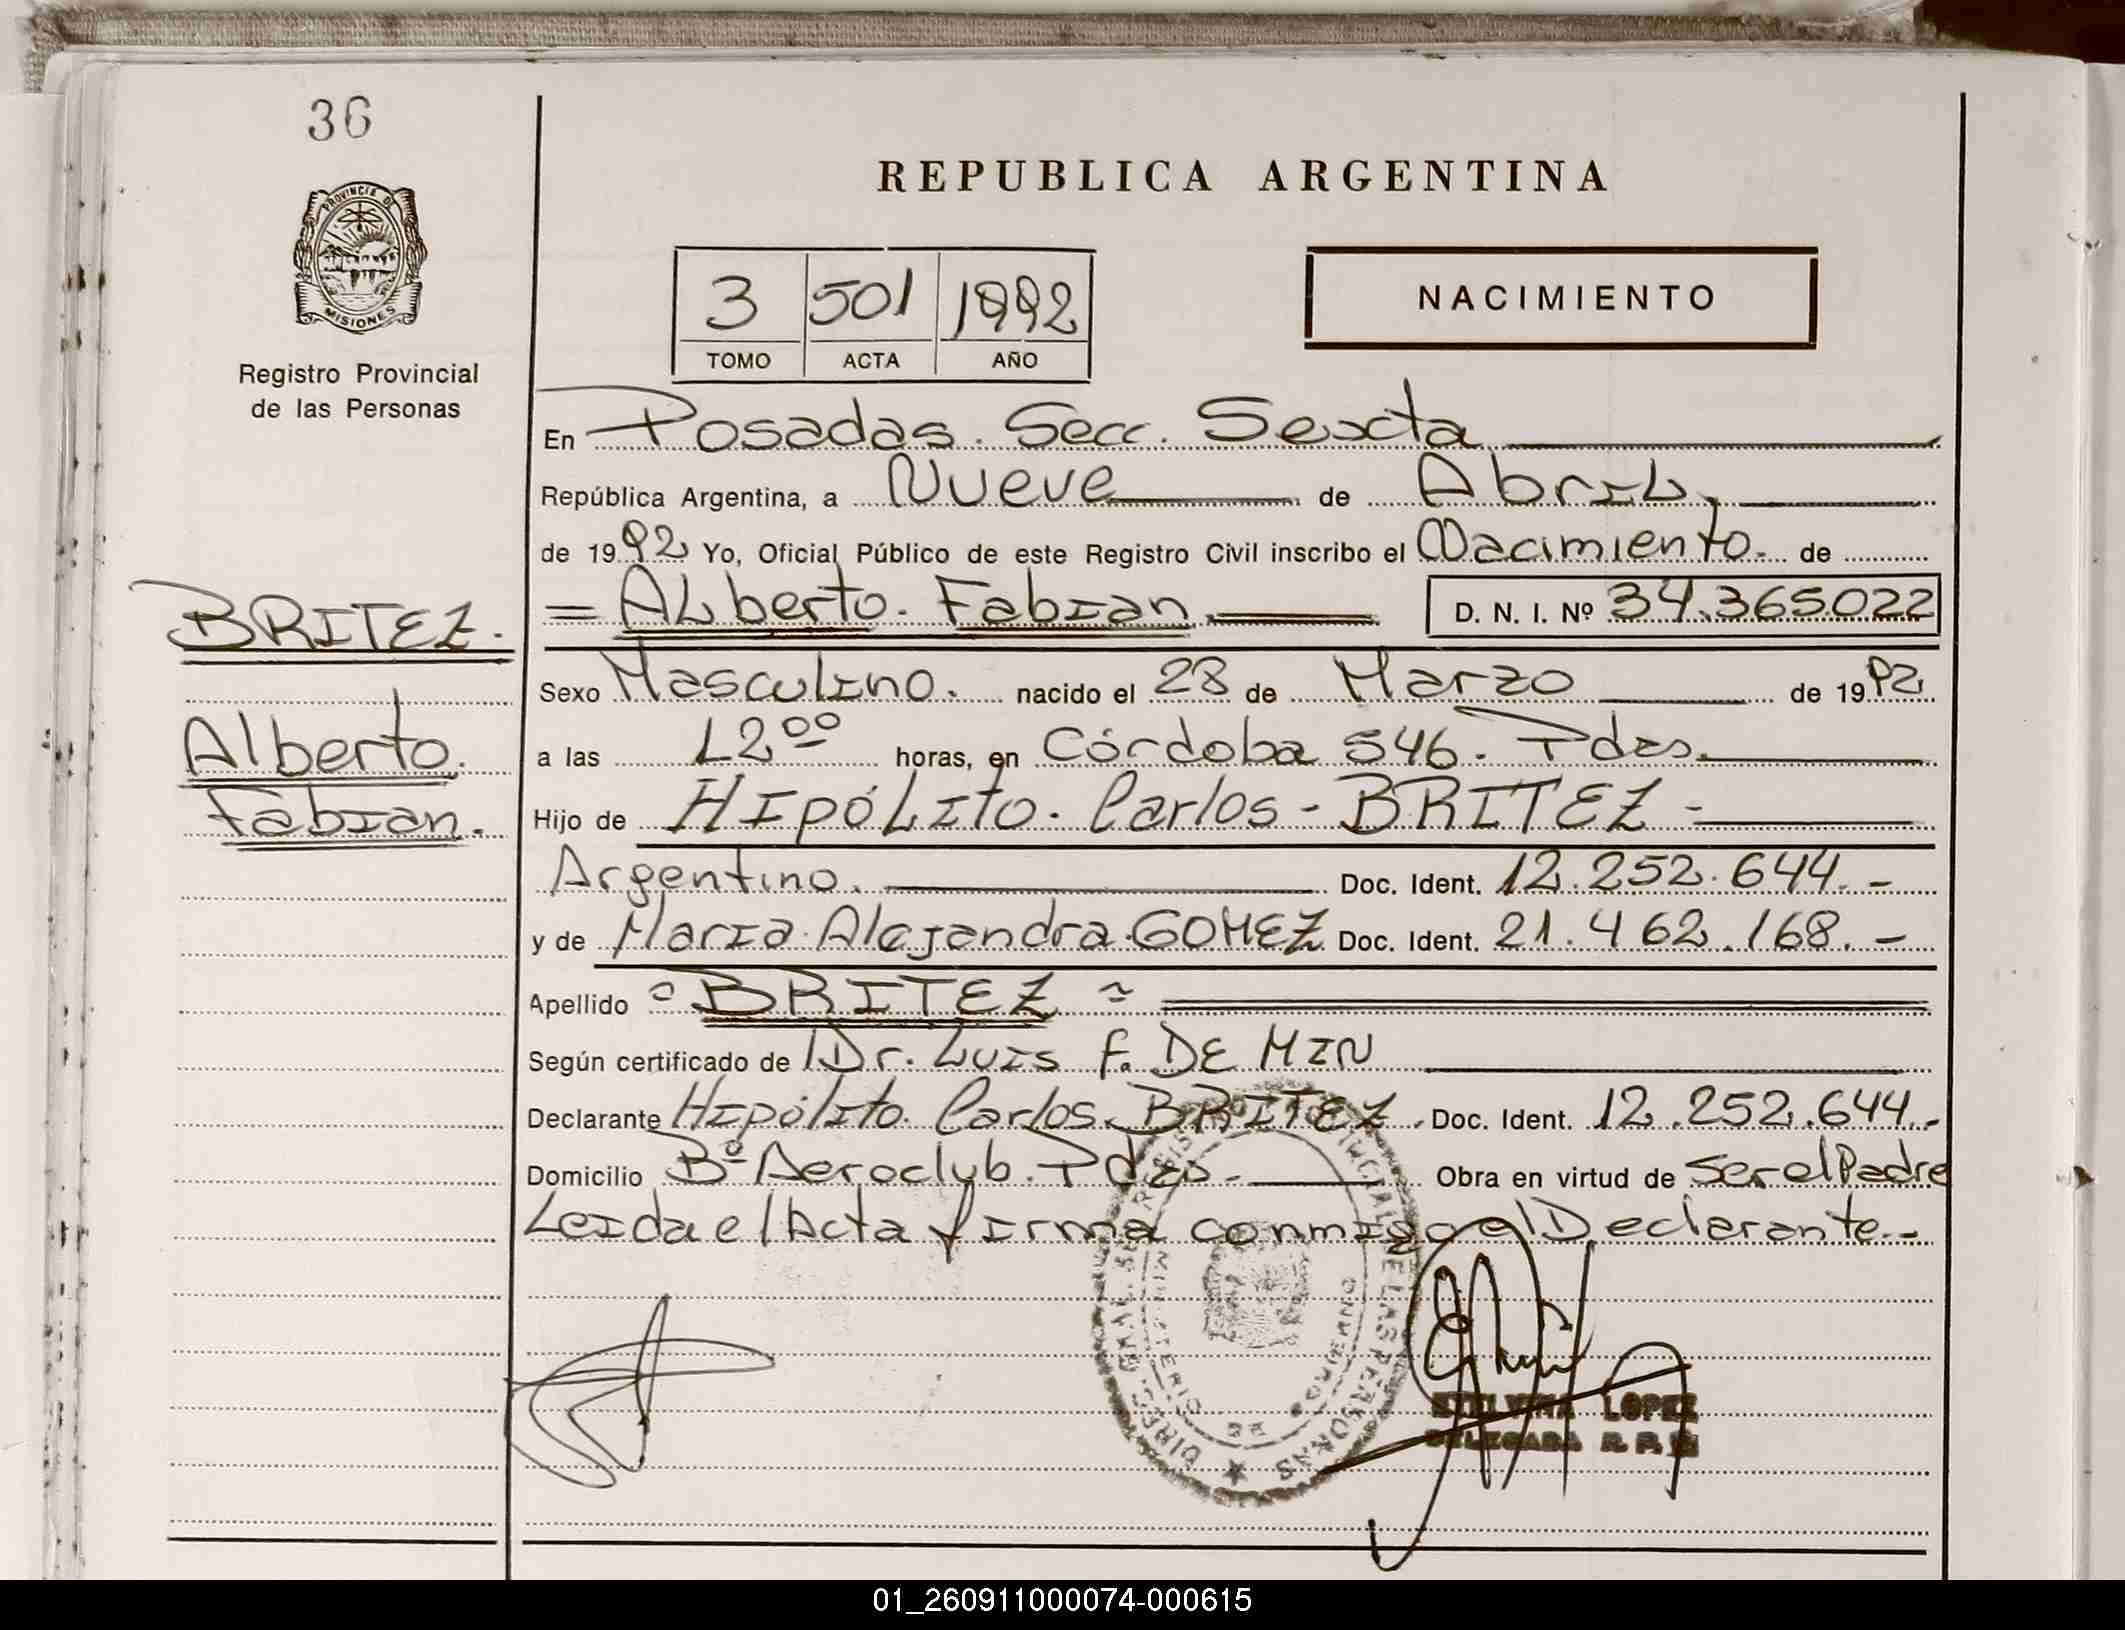 36
REPUBLICA ARGENTINA
PROVINCIA DE
MISIONES
Registro Provincial
de las Personas
3 501 1992
TOMO ACTA AÑO
NACIMIENTO
En Posadas. Secc. Sexta
República Argentina, a Nueve de Abril,
de 1992 Yo, Oficial Público de este Registro Civil inscribo el Nacimiento. de
BRITEZ.
= Alberto. Fabian, D. N. I. Nº 34.365.022
Sexo Masculino. nacido el 28 de Marzo de 1992
Alberto.
a las 12ºº horas, en Córdoba 546. Pdas.
Fabian.
Hijo de Hipólito. Carlos - BRITEZ -
Argentino. Doc. Ident. 12.252.644.-
y de Maria Alejandra GOMEZ Doc. Ident. 21.462.168.-
Apellido = BRITEZ =
Según certificado de Dr. Luis F. DE MIN
Declarante Hipólito. Carlos. BRITEZ. Doc. Ident. 12.252.644.-
Domicilio Bº Aeroclub. Pdas. - Obra en virtud de Ser el Padre
Leida el Acta firma conmigo el Declarante.-
LOPEZ
DELEGADA R. P.
01_260911000074-000615